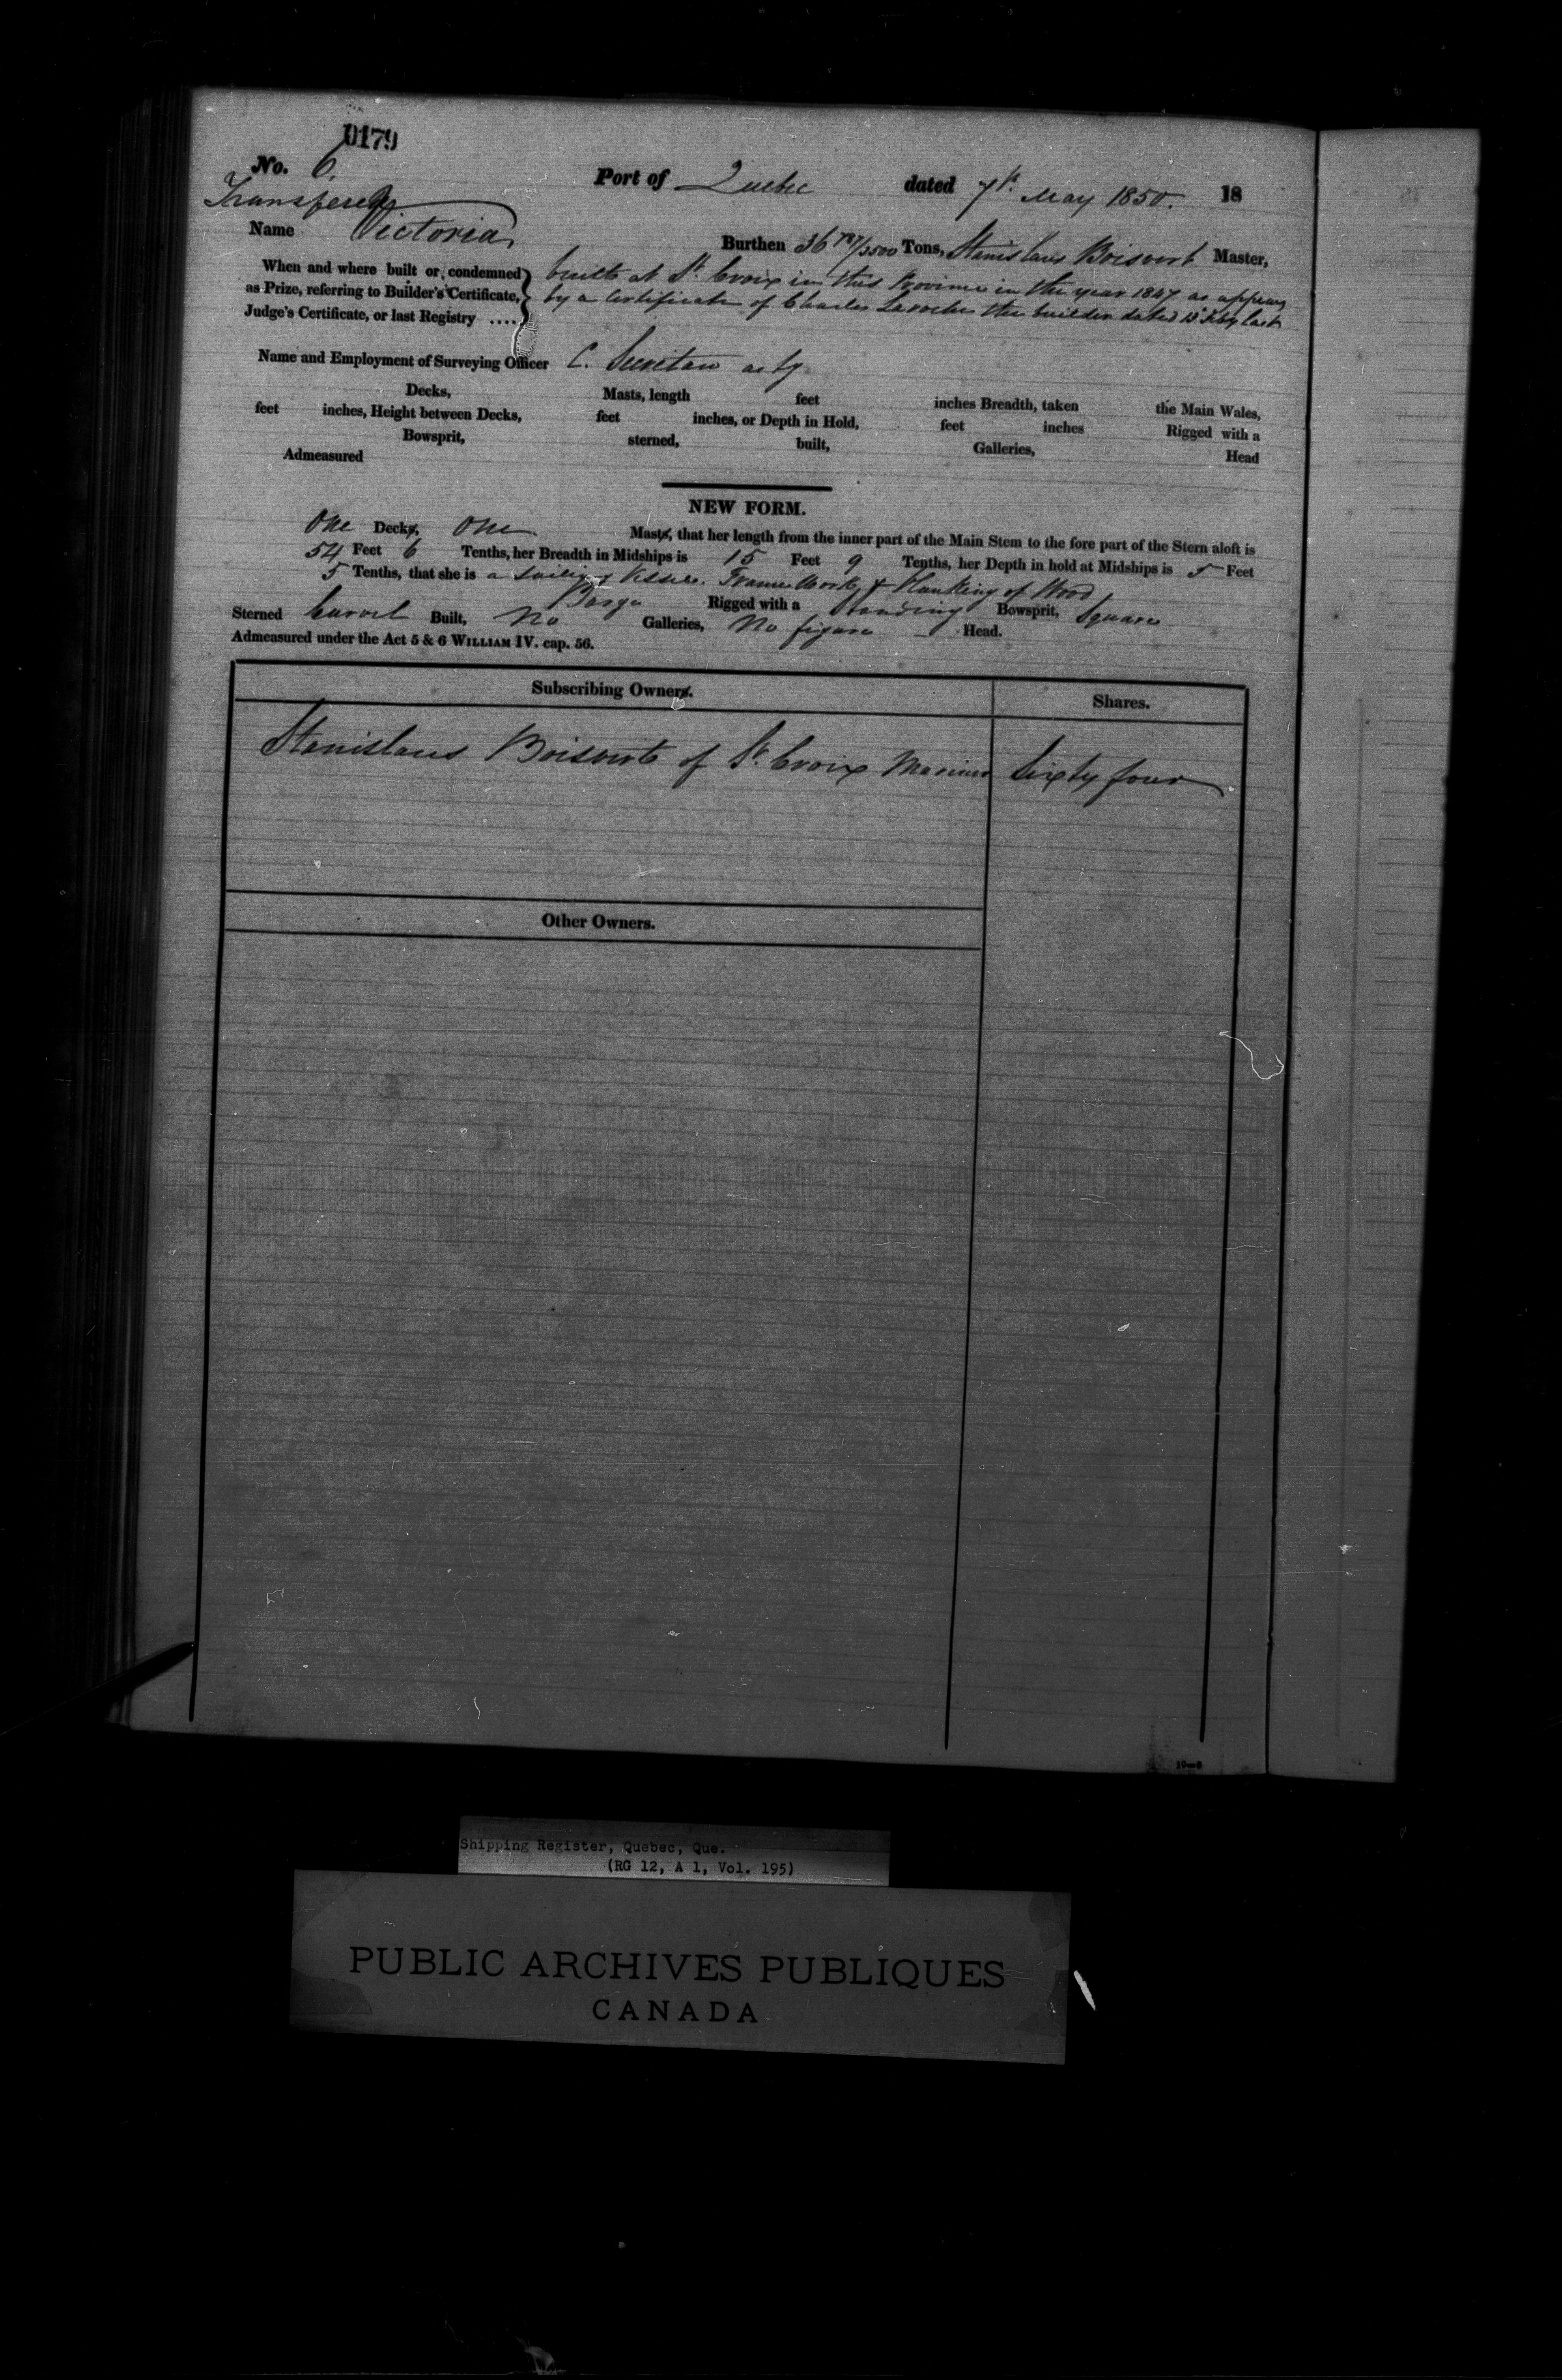 0179
No. 6.
Port of Quebec dated 7th May 1850. 18
Transfered
Name Victoria Burthen 36 787/3500 Tons, Stanislaus Boisvert Master,
When and where built or condemned built at St. Croix in this Province in the year 1847 as appears
as Prize, referring to Builder's Certificate, by a Certificate of Charles Laroche the builder dated 13th Feby last
Judge's Certificate, or last Registry ....
Name and Employment of Surveying Officer C. Secretan actg
Decks, Masts, length feet inches Breadth, taken the Main Wales,
feet inches, Height between Decks, feet inches, or Depth in Hold, feet inches Rigged with a
Bowsprit, sterned, built, Galleries, Head
Admeasured
NEW FORM.
One Decks, One Masts, that her length from the inner part of the Main Stem to the fore part of the Stern aloft is
54 Feet 6 Tenths, her Breadth in Midships is 15 Feet 9 Tenths, her Depth in hold at Midships is 5 Feet
5 Tenths, that she is a Sailing Vessel. Frame Work & Planking of Wood
Barge Rigged with a Standing Bowsprit, Square
Sterned Carvel Built, No Galleries, No figure Head.
Admeasured under the Act 5 & 6 WILLIAM IV. cap. 56.
Subscribing Owners. Shares.
Stanislaus Boisvert of St. Croix Mariner Sixty four
Other Owners.
Shipping Register, Quebec, Que.
(RG 12, A 1, Vol. 195)
PUBLIC ARCHIVES PUBLIQUES
CANADA